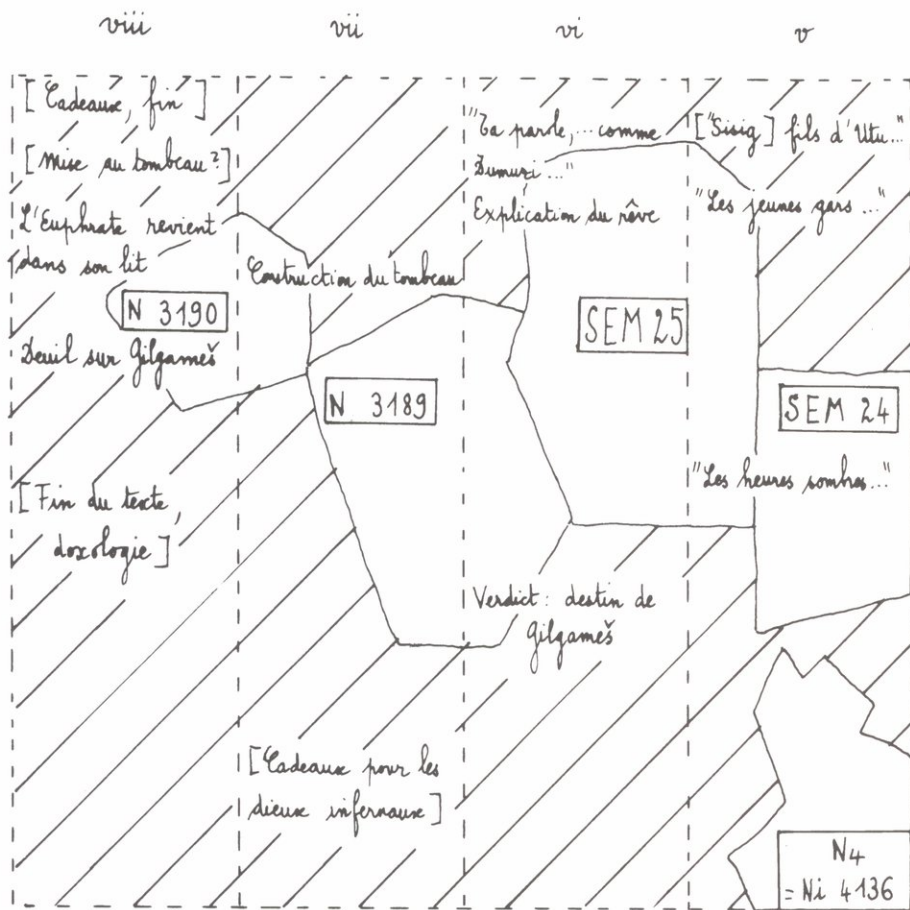 viii vii vi v
[Cadeaux, fin]
[Mise au tombeau?]
L'Euphrate revient
dans son lit
N 3190
Deuil sur Gilgameš
[Fin du texte,
doxologie]
Construction du tombeau
N 3189
[Cadeaux pour les
dieux infernaux]
"Ta parole,... comme
Dumuzi..."
Explication du rêve
SEM 25
Verdict: destin de
Gilgameš
["Sisig] fils d'Utu..."
"Les jeunes gars..."
SEM 24
"Les heures sombres..."
N4
= Ni 4136